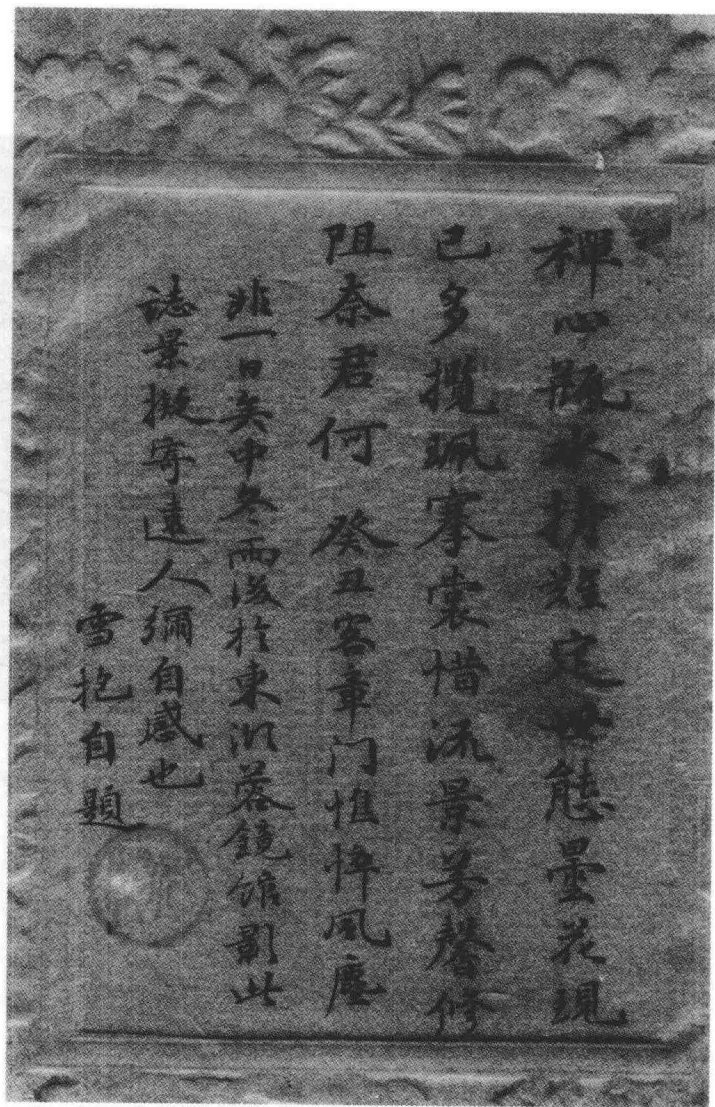 禅心瓶水持難定世態曇花現
已多攬珮搴裳惜流景芳馨修
阻奈君何 癸丑客章门憔悴风塵
非一日矣中冬雨後於東湖蓉鏡館影此
誌景擬寄遠人彌自感也
雪抱自題